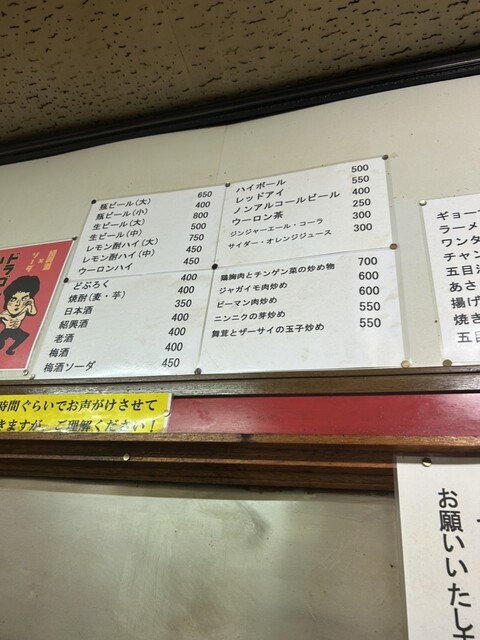 瓶ビール(大) 650
瓶ビール(小) 400
生ビール(大) 800
生ビール(中) 500
レモン酎ハイ(大) 750
レモン酎ハイ(中) 450
ウーロンハイ 450
どぶろく 400
焼酎(麦・芋) 400
日本酒 350
紹興酒 400
老酒 400
梅酒 400
梅酒ソーダ 450
ハイボール 500
レッドアイ 550
ノンアルコールビール 400
ウーロン茶 250
ジンジャーエール・コーラ 300
サイダー・オレンジジュース 300
鶏胸肉とチンゲン菜の炒め物 700
ジャガイモ肉炒め 600
ピーマン肉炒め 600
ニンニクの芽炒め 550
舞茸とザーサイの玉子炒め 550
ギョー
ラーメ
ワンタ
チャン
五目
あさ
揚げ
焼き
五目
時間ぐらいでお声がけさせて
きますが、ご理解ください!
お願いいたしま